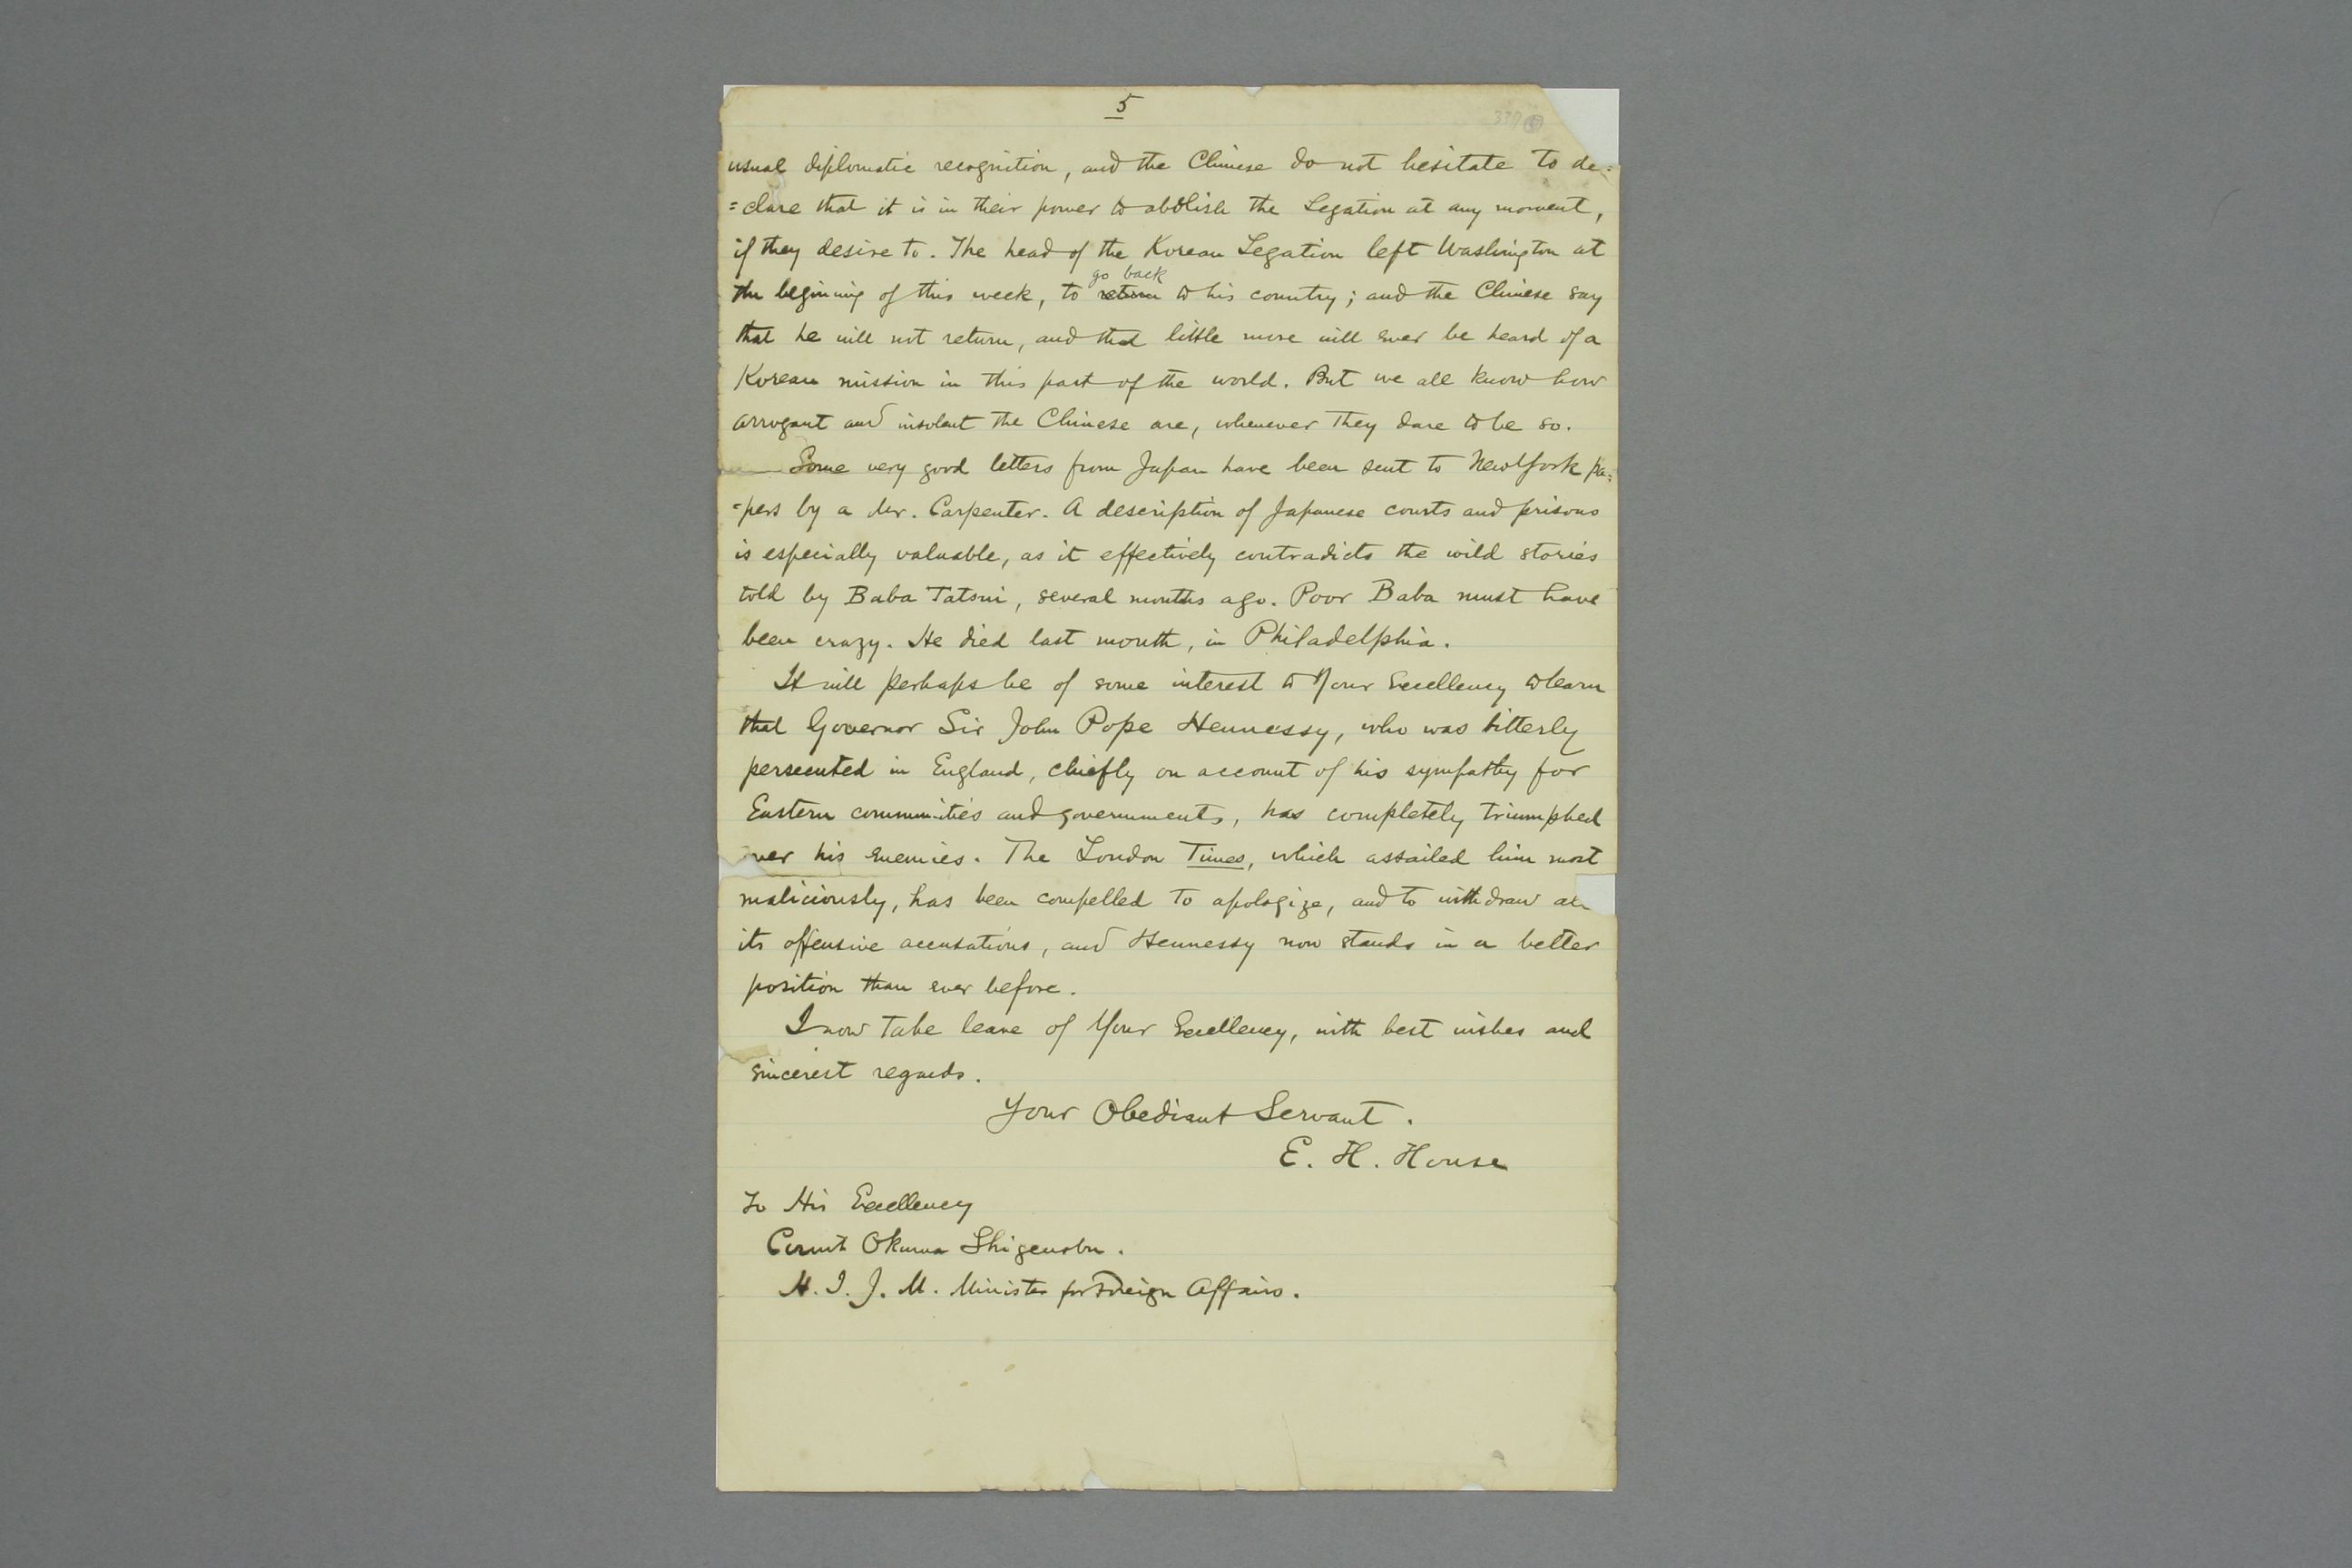 5
usual diplomatic recognition, and the Chinese do not hesitate to de=
=clare that it is in their power to abolish the Legation at any moment,
if they desire to. The head of the Korean Legation left Washington at
go back
the beginning of this week, to return to his country; and the Chinese say
that he will not return, and that little more will ever be heard of a
Korean mission in this part of the world. But we all know how
arrogant and insolent the Chinese are, whenever they dare to be so.
Some very good letters from Japan have been sent to New York pa=
=pers by a Mr. Carpenter. A description of Japanese courts and prisons
is especially valuable, as it effectively contradicts the wild stories
told by Baba Tatsui, several months ago. Poor Baba must have
been crazy. He died last month, in Philadelphia.
It will perhaps be of some interest to Your Excellency to learn
that Governor Sir John Pope Hennessy, who was bitterly
persecuted in England, chiefly on account of his sympathy for
Eastern communities and governments, has completely triumphed
over his enemies. The London Times, which assailed him most
maliciously, has been compelled to apologize, and to withdraw all
its offensive accusations, and Hennessy now stands in a better
position than ever before.
I now take leave of Your Excellency, with best wishes and
sincerest regards.
Your Obediant Servant.
E. H. House
To His Excellency
Count Okuma Shigenobu.
H. I. J. M. Minister for Foreign Affairs.